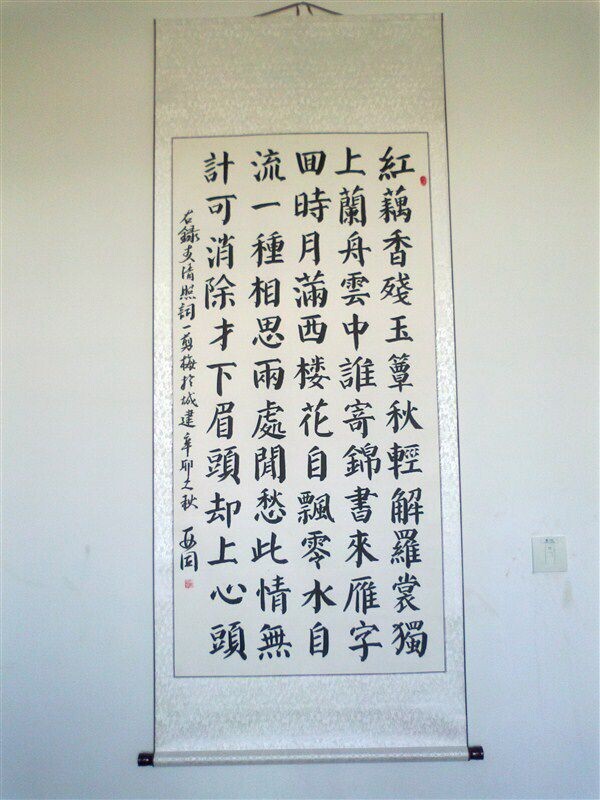 紅藕香殘玉簟秋輕解羅裳獨
上蘭舟雲中誰寄錦書來雁字
回時月滿西楼花自飄零水自
流一種相思兩處閒愁此情無
計可消除才下眉頭却上心頭
右錄李清照詞一剪梅於城建辛卯之秋